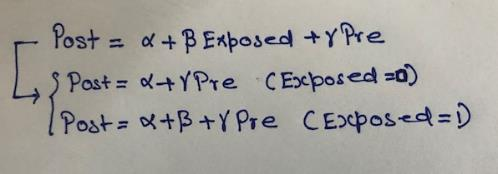 Post = α + β Exposed + γ Pre
Post = α + γ Pre (Exposed = 0)
Post = α + β + γ Pre (Exposed = 1)